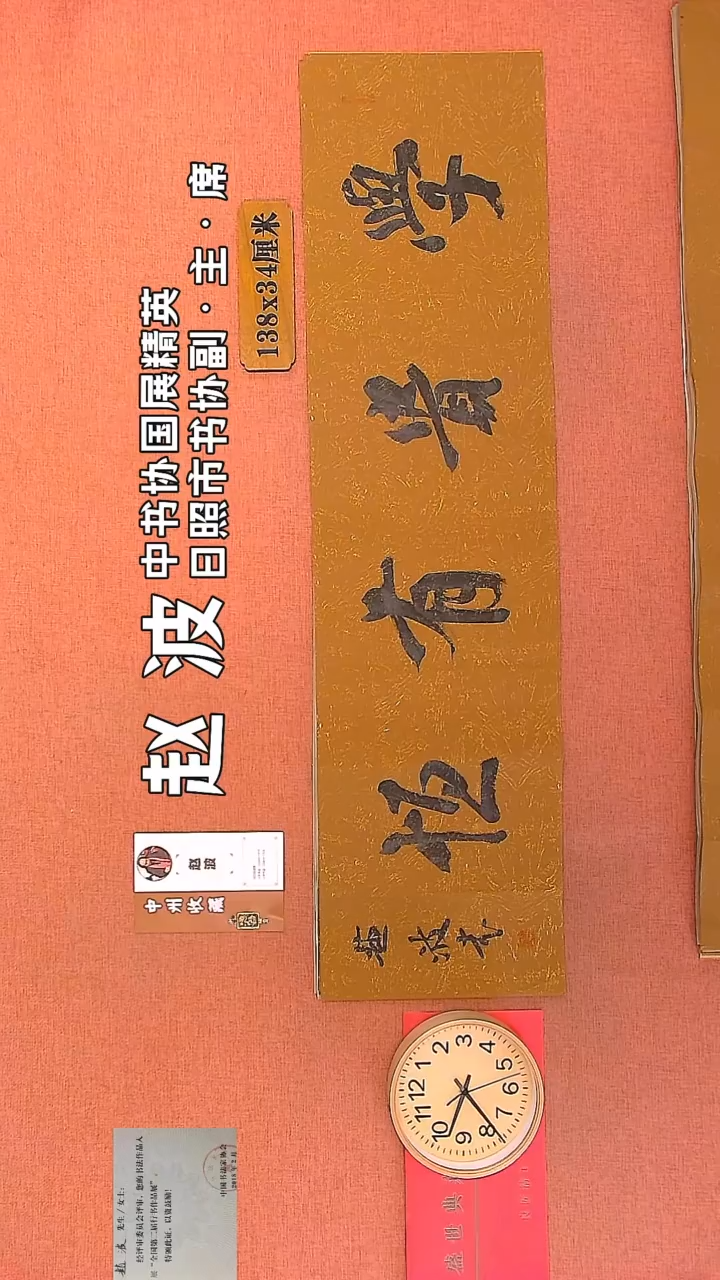 赵波
中书协国展精英
日照市书协副·主·席
138x34厘米
學貴有恒
赵波书
赵波
中州收藏
赵波 先生/女士:
经评审委员会评审,您的书法作品入
展“全国第二届行书作品展”。
特颁此证,以资鼓励!
中国书法家协会
盛世典
12 1 2 3 4 5 6 7 8 9 10 11